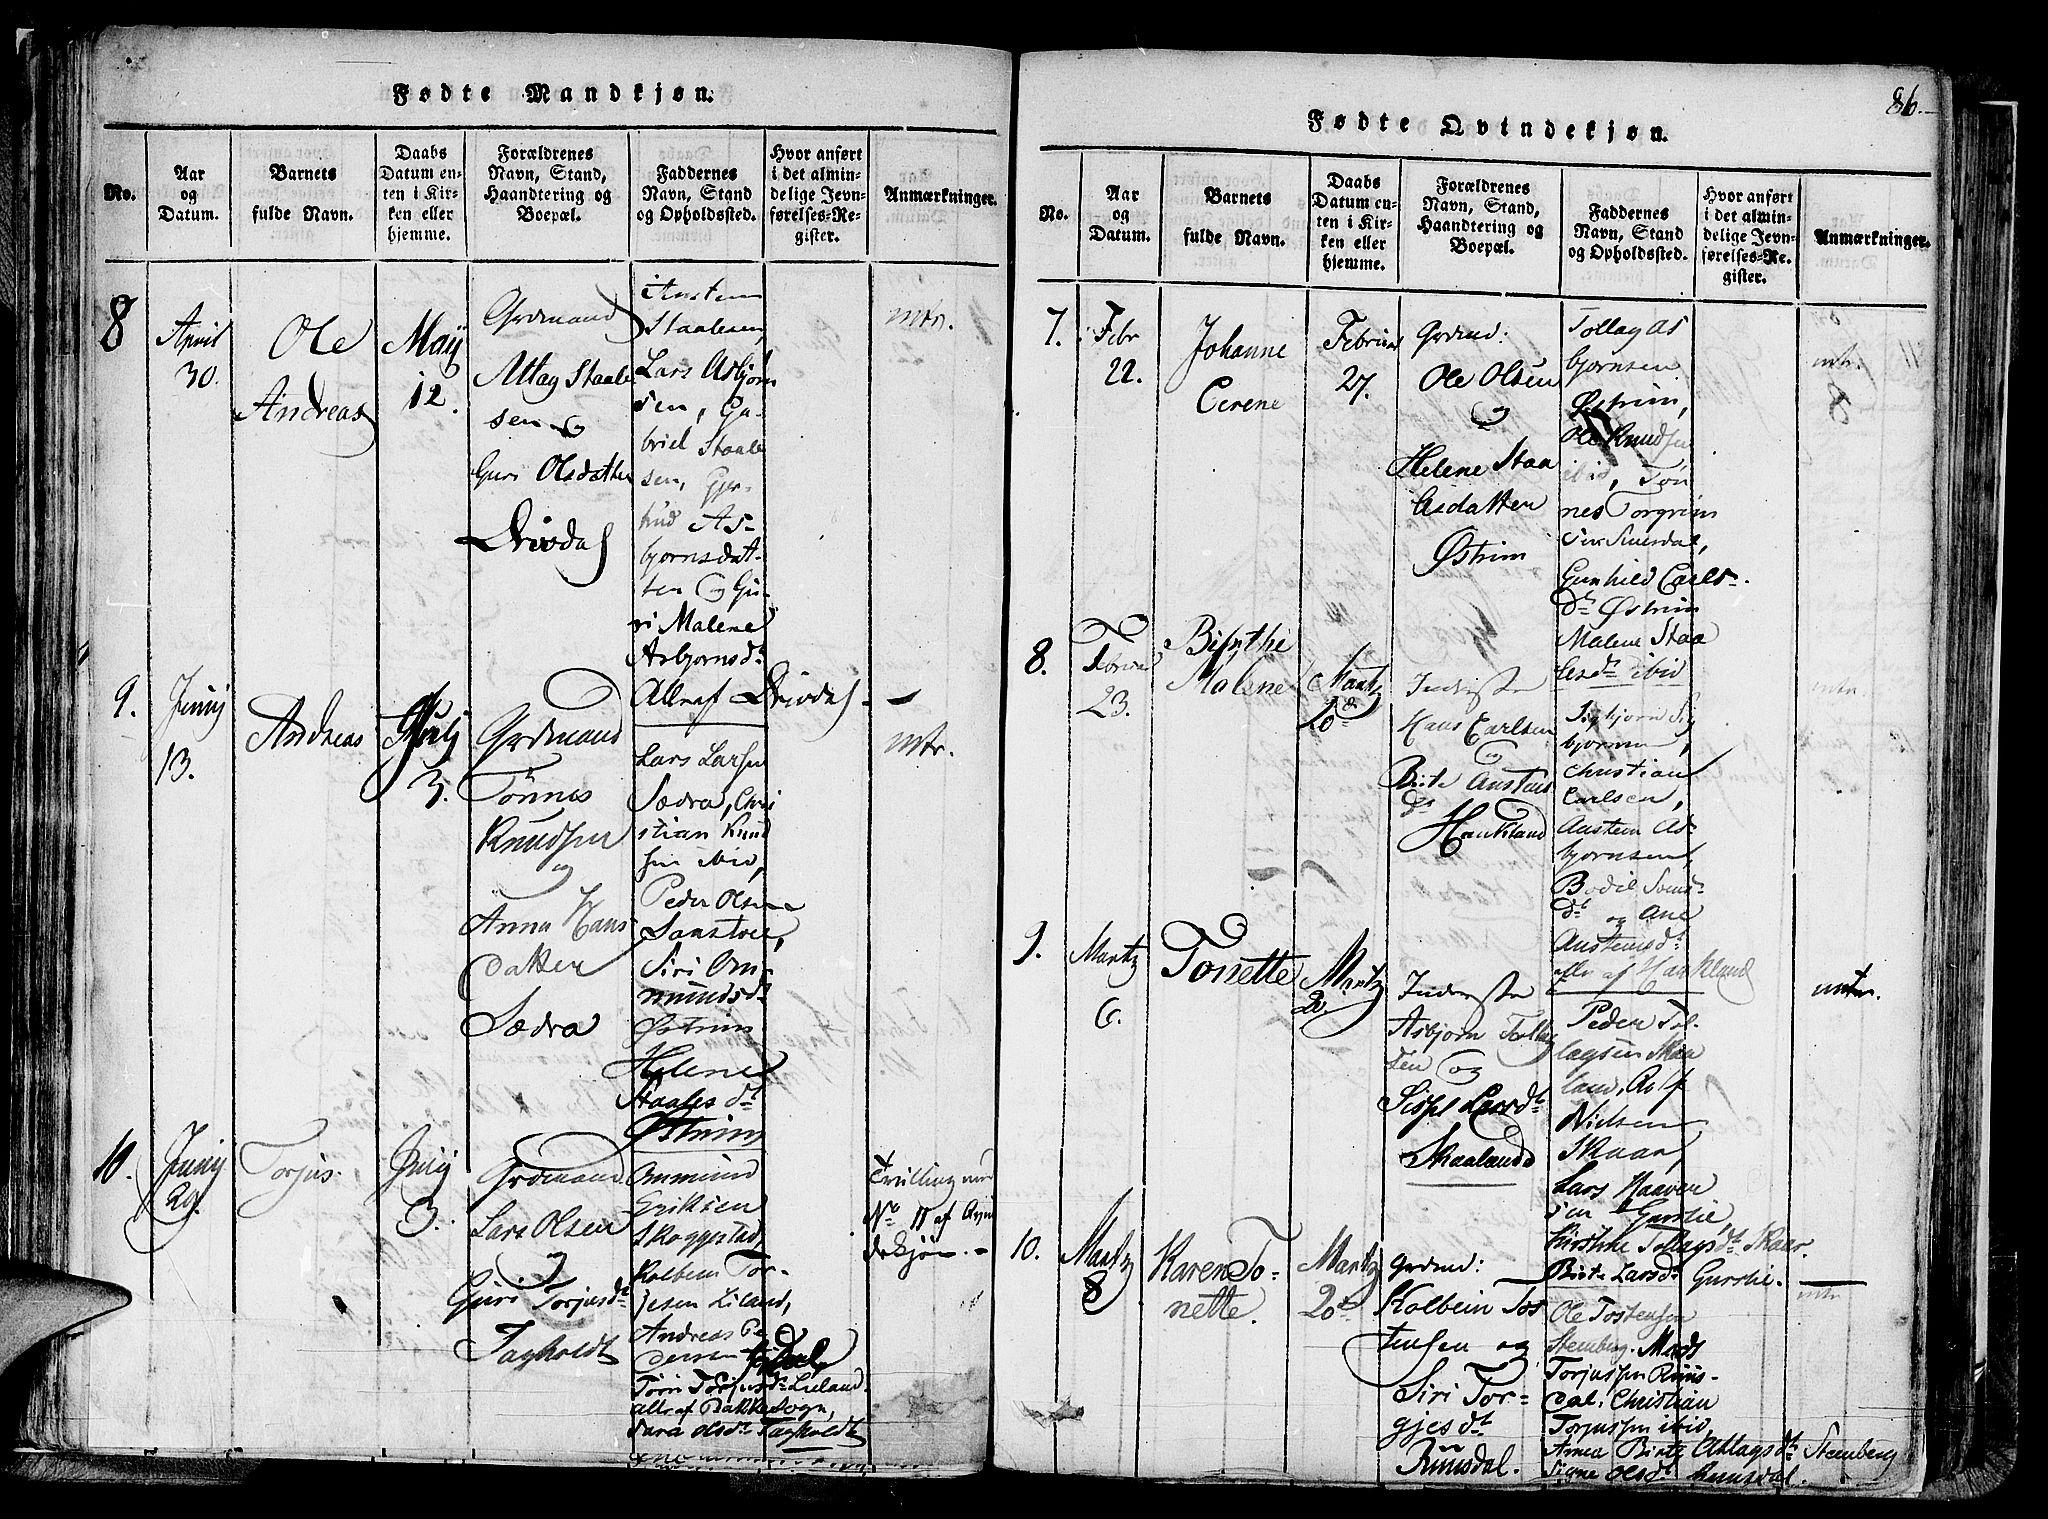 Fødte Mandkjøn.
No.
Aar
og
Datum.
Barnets
fulde Navn.
Daabs
Datum en-
ten i Kir-
ken eller
hjemme.
Forældrenes
Navn, Stand,
Haandtering og
Boepæl.
Faddernes
Navn, Stand
og Opholdssted.
Hvor anført
i det almin-
delige Jevn-
førelses-Re-
gister.
Anmærkninger.
8
April
30.
Ole
Andreas
Maij
12.
Grdmand
Attag Staale
sen og
Guri Olsdatter
Drivdal
Austen
Staalesen,
Lars Asbjørn
sen, Ga-
briel Staale
sen, Gjer-
trud As-
bjørnsdat-
ter og Gu-
ri Malene
Asbjørnsdr
Alle af Drivdal
mtr.
9.
Junij
13.
Andreas
Julij
3.
Grdmand
Tønnes
Knudsen
og
Anna Hans
datter
Sædra
Lars Larsen
Sædra, Chri
stian Knud
sen ibid,
Peder Olsen
Siri Om-
mundsdr
Østrim
Helene
Staalesdr
Østrim
mtr.
10.
Junij
29.
Torjus.
Julij
3.
Grdmand
Lars Olsen
og
Guri Torjusdr
Fagholdt
Ommund
Eriksen
Skoggestad,
Kolbein Tor-
jesen Liland,
Andreas Pe
dersen
Tøri Torjusdr Lieland
alle af Bakke Sogn,
Sara Olsdr Fagholdt
Tvilling med
No 11 af Qvin
dekjøn.
86.
Fødte Qvindekjøn.
No.
Aar
og
Datum.
Barnets
fulde Navn.
Daabs
Datum en-
ten i Kir-
ken eller
hjemme.
Forældrenes
Navn, Stand,
Haandtering og
Boepæl.
Faddernes
Navn, Stand
og Opholdssted.
Hvor anført
i det almin-
delige Jevn-
førelses-Re-
gister.
Anmærkninger.
7.
Febr
22.
Johanne
Cerene
Februar
27.
Grdmd:
Ole Olsen
og
Helene Staa
lesdatter
Østrim
Tollag As
bjørnsen
Østrim,
Ole Knudsen
ibid, Tøn
nes Torgrim
sen
Gunhild Carls-
dr Østrim
Malene Staa
lesdr ibid
mtr.
8
8.
Febru
23.
Birthe
Malene
Martz
20de
Inderste
Hans Carlsen
og
Birte Austens
dr
Haukland
Sigbjørn Sig
bjørnsen,
Christian
Carlsen,
Austen As
bjørnsen,
Bodil
dr og Ane
Austensdr
alle af Haukland
mtr.
9.
Martz
6.
Tonette
Martz
20.
Inderste
Asbjørn Tollag
sen og
Sissel Larsdr
Skaaland
Peder Tol-
lagsen Skaa
land, Rolf
Nielsen
Skaar,
Lars Haaver
sen Gurslie
Kirstine Tollagsdr Skaar.
Birte Larsdr Gurslie.
mtr.
10.
Martz
8
Karen To-
nette.
Martz
20de
Grdmd:
Kolbein Tos
tensen og
Siri Tor-
gjesdr
Ruusdal.
Ole Tostensen
Stemberg. Mads
Torjussen Ruus-
dal. Christian
Torjussen ibid,
Anna Birte Attagsdr Stemberg
Signe Olsdr Ruusdal.
mtr